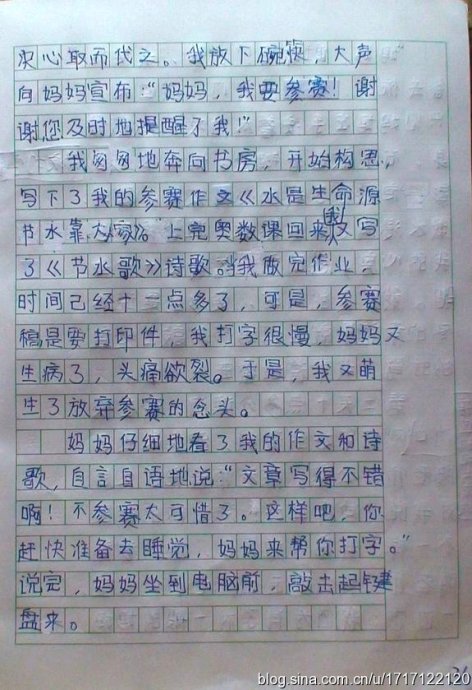 决心取而代之。我放下碗筷，大声
向妈妈宣布："妈妈，我要参赛！谢
谢您及时地提醒了我！"
我匆匆地奔向书房，开始构思，
写下了我的参赛作文《水是生命源
节水靠大家》。上完奥数课回来我又写
了《节水歌》诗歌。当我做完作业，
时间已经十一点多了，可是，参赛
稿是要打印件，我打字很慢，妈妈又
生病了，头痛欲裂。于是，我又萌
生了放弃参赛的念头。
妈妈仔细地看了我的作文和诗
歌，自言自语地说："文章写得不错
啊！不参赛太可惜了。这样吧，你
赶快准备去睡觉，妈妈来帮你打字。"
说完，妈妈坐到电脑前，敲击起键
盘来。
blog.sina.com.cn/u/1717122120